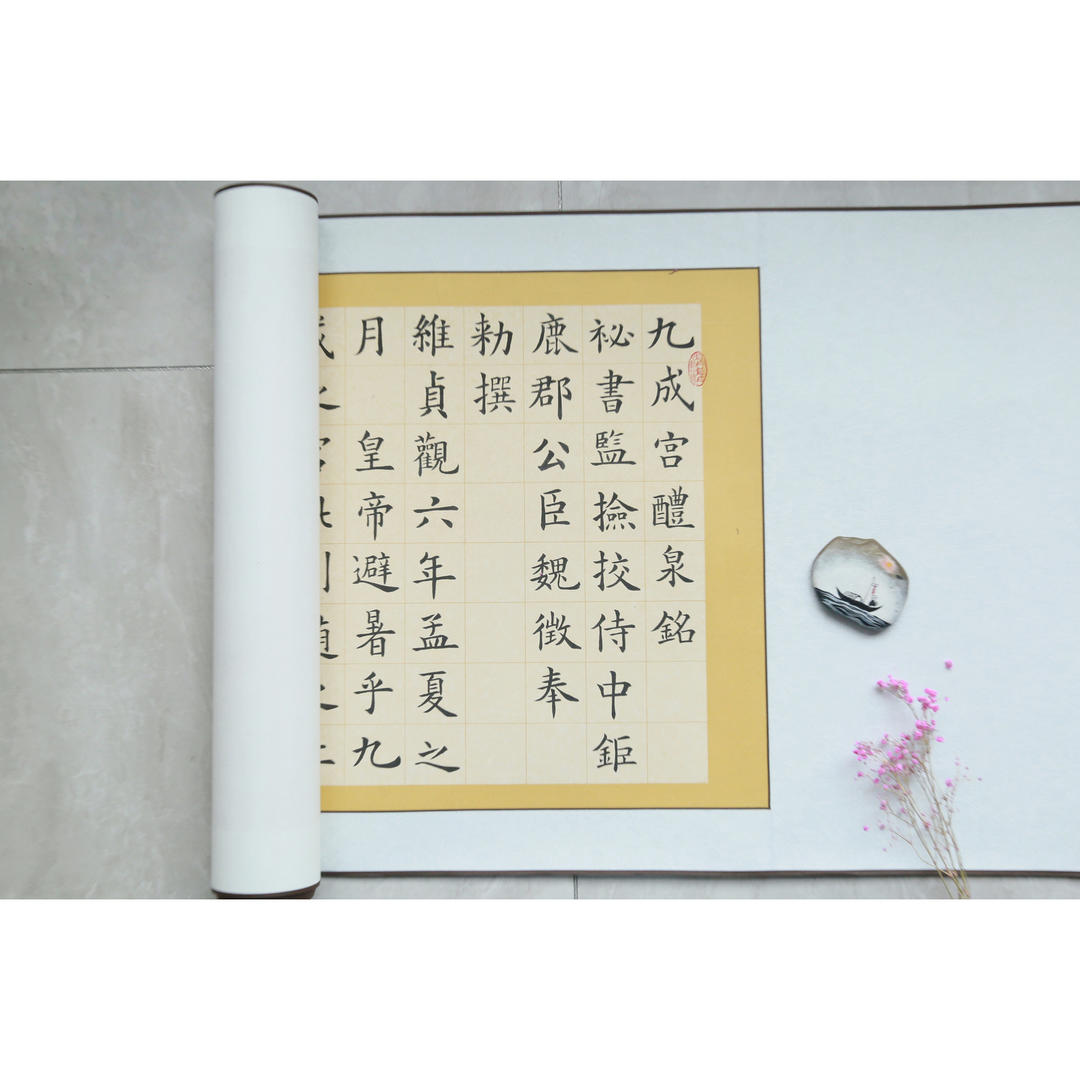 九成宫醴泉銘
祕書監撿挍侍中鉅
鹿郡公臣魏徵奉
勑撰
維貞觀六年孟夏之
月皇帝避暑乎九